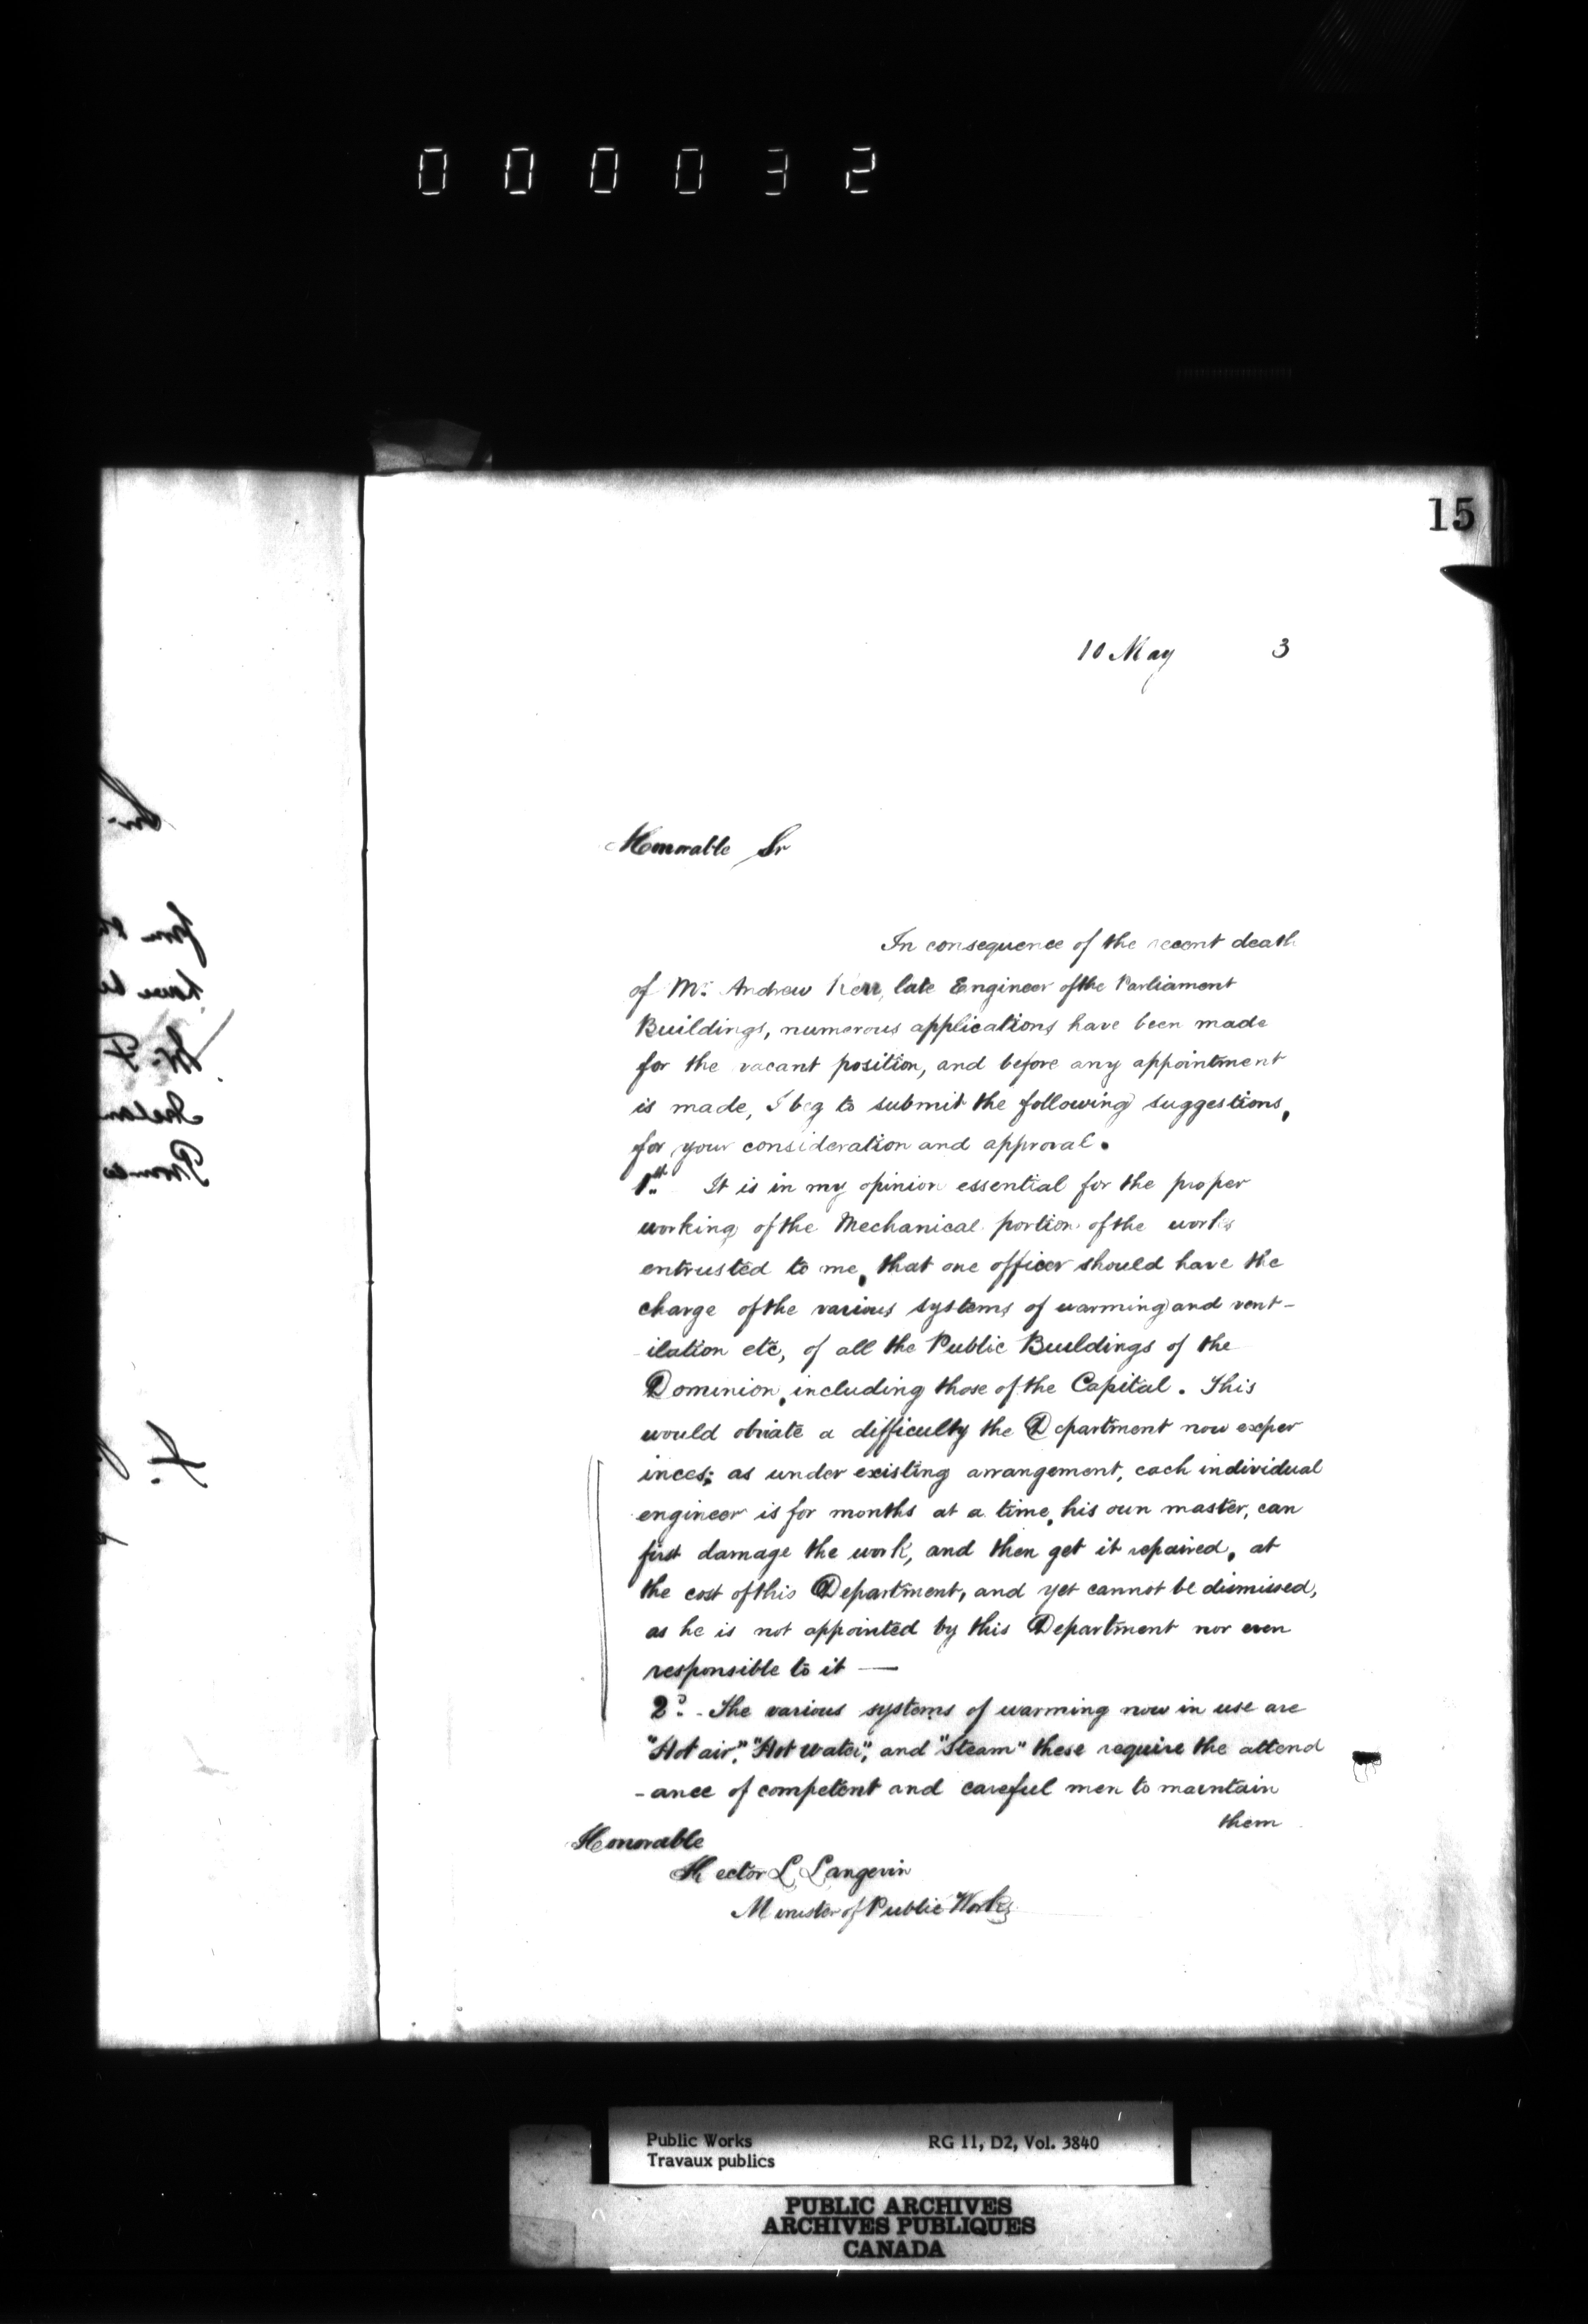 000032
15
10 May 3
Honorable Sr
In consequence of the recent death
of Mr. Andrew Kerr, late Engineer of the Parliament
Buildings, numerous applications have been made
for the vacant position, and before any appointment
is made, I beg to submit the following suggestions,
for your consideration and approval.
1st. It is in my opinion essential for the proper
working of the Mechanical portion of the works
entrusted to me, that one officer should have the
charge of the various systems of warming and vent-
ilation etc, of all the Public Buildings of the
Dominion, including those of the Capital. This
would obviate a difficulty the Department now exper
inces; as under existing arrangement, each individual
engineer is for months at a time, his own master, can
first damage the work, and then get it repaired, at
the cost of this Department, and yet cannot be dismissed,
as he is not appointed by this Department nor even
responsible to it —
2d. - The various systems of warming now in use are
"Hot air", "Hot water", and "Steam" these require the attend
-ance of competent and careful men to maintain
them
Honorable
Hector L Langevin
Minister of Public Works
Public Works
Travaux publics
RG 11, D2, Vol. 3840
PUBLIC ARCHIVES
ARCHIVES PUBLIQUES
CANADA